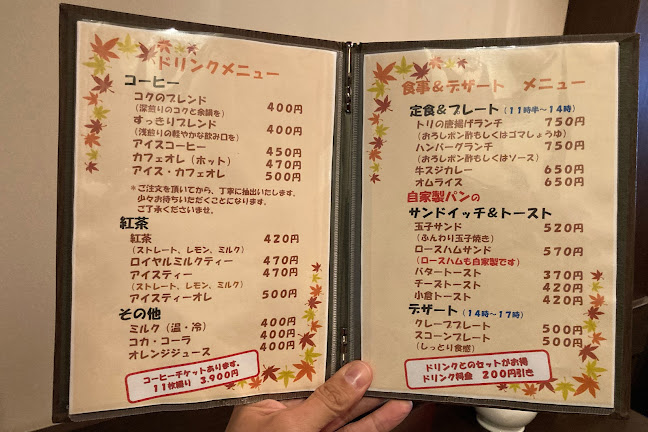 ドリンクメニュー
コーヒー
コクのブレンド 400円
(深煎りのコクと余韻を)
すっきりブレンド 400円
(浅煎りの軽やかな飲み口を)
アイスコーヒー 450円
カフェオレ (ホット) 470円
アイス・カフェオレ 500円
*ご注文を頂いてから、丁寧に抽出いたします。
少々お待ちいただくことになります。
ご了承くださいませ。
紅茶
紅茶 420円
(ストレート、レモン、ミルク)
ロイヤルミルクティー 470円
アイスティー 470円
(ストレート、レモン、ミルク)
アイスティーオレ 500円
その他
ミルク (温・冷) 400円
コカ・コーラ 400円
オレンジジュース 400円
コーヒーチケットあります。
11枚綴り 3,900円
食事&デザート メニュー
定食&プレート (11時半~14時)
トリの唐揚げランチ 750円
(おろしポン酢もしくはゴマしょうゆ)
ハンバーグランチ 750円
(おろしポン酢もしくはソース)
牛スジカレー 650円
オムライス 650円
自家製パンの
サンドイッチ&トースト
玉子サンド 520円
(ふんわり玉子焼き)
ロースハムサンド 570円
(ロースハムも自家製です)
バタートースト 370円
チーズトースト 420円
小倉トースト 420円
デザート (14時~17時)
クレーププレート 500円
スコーンプレート 500円
(しっとり食感)
ドリンクとのセットがお得
ドリンク料金 200円引き